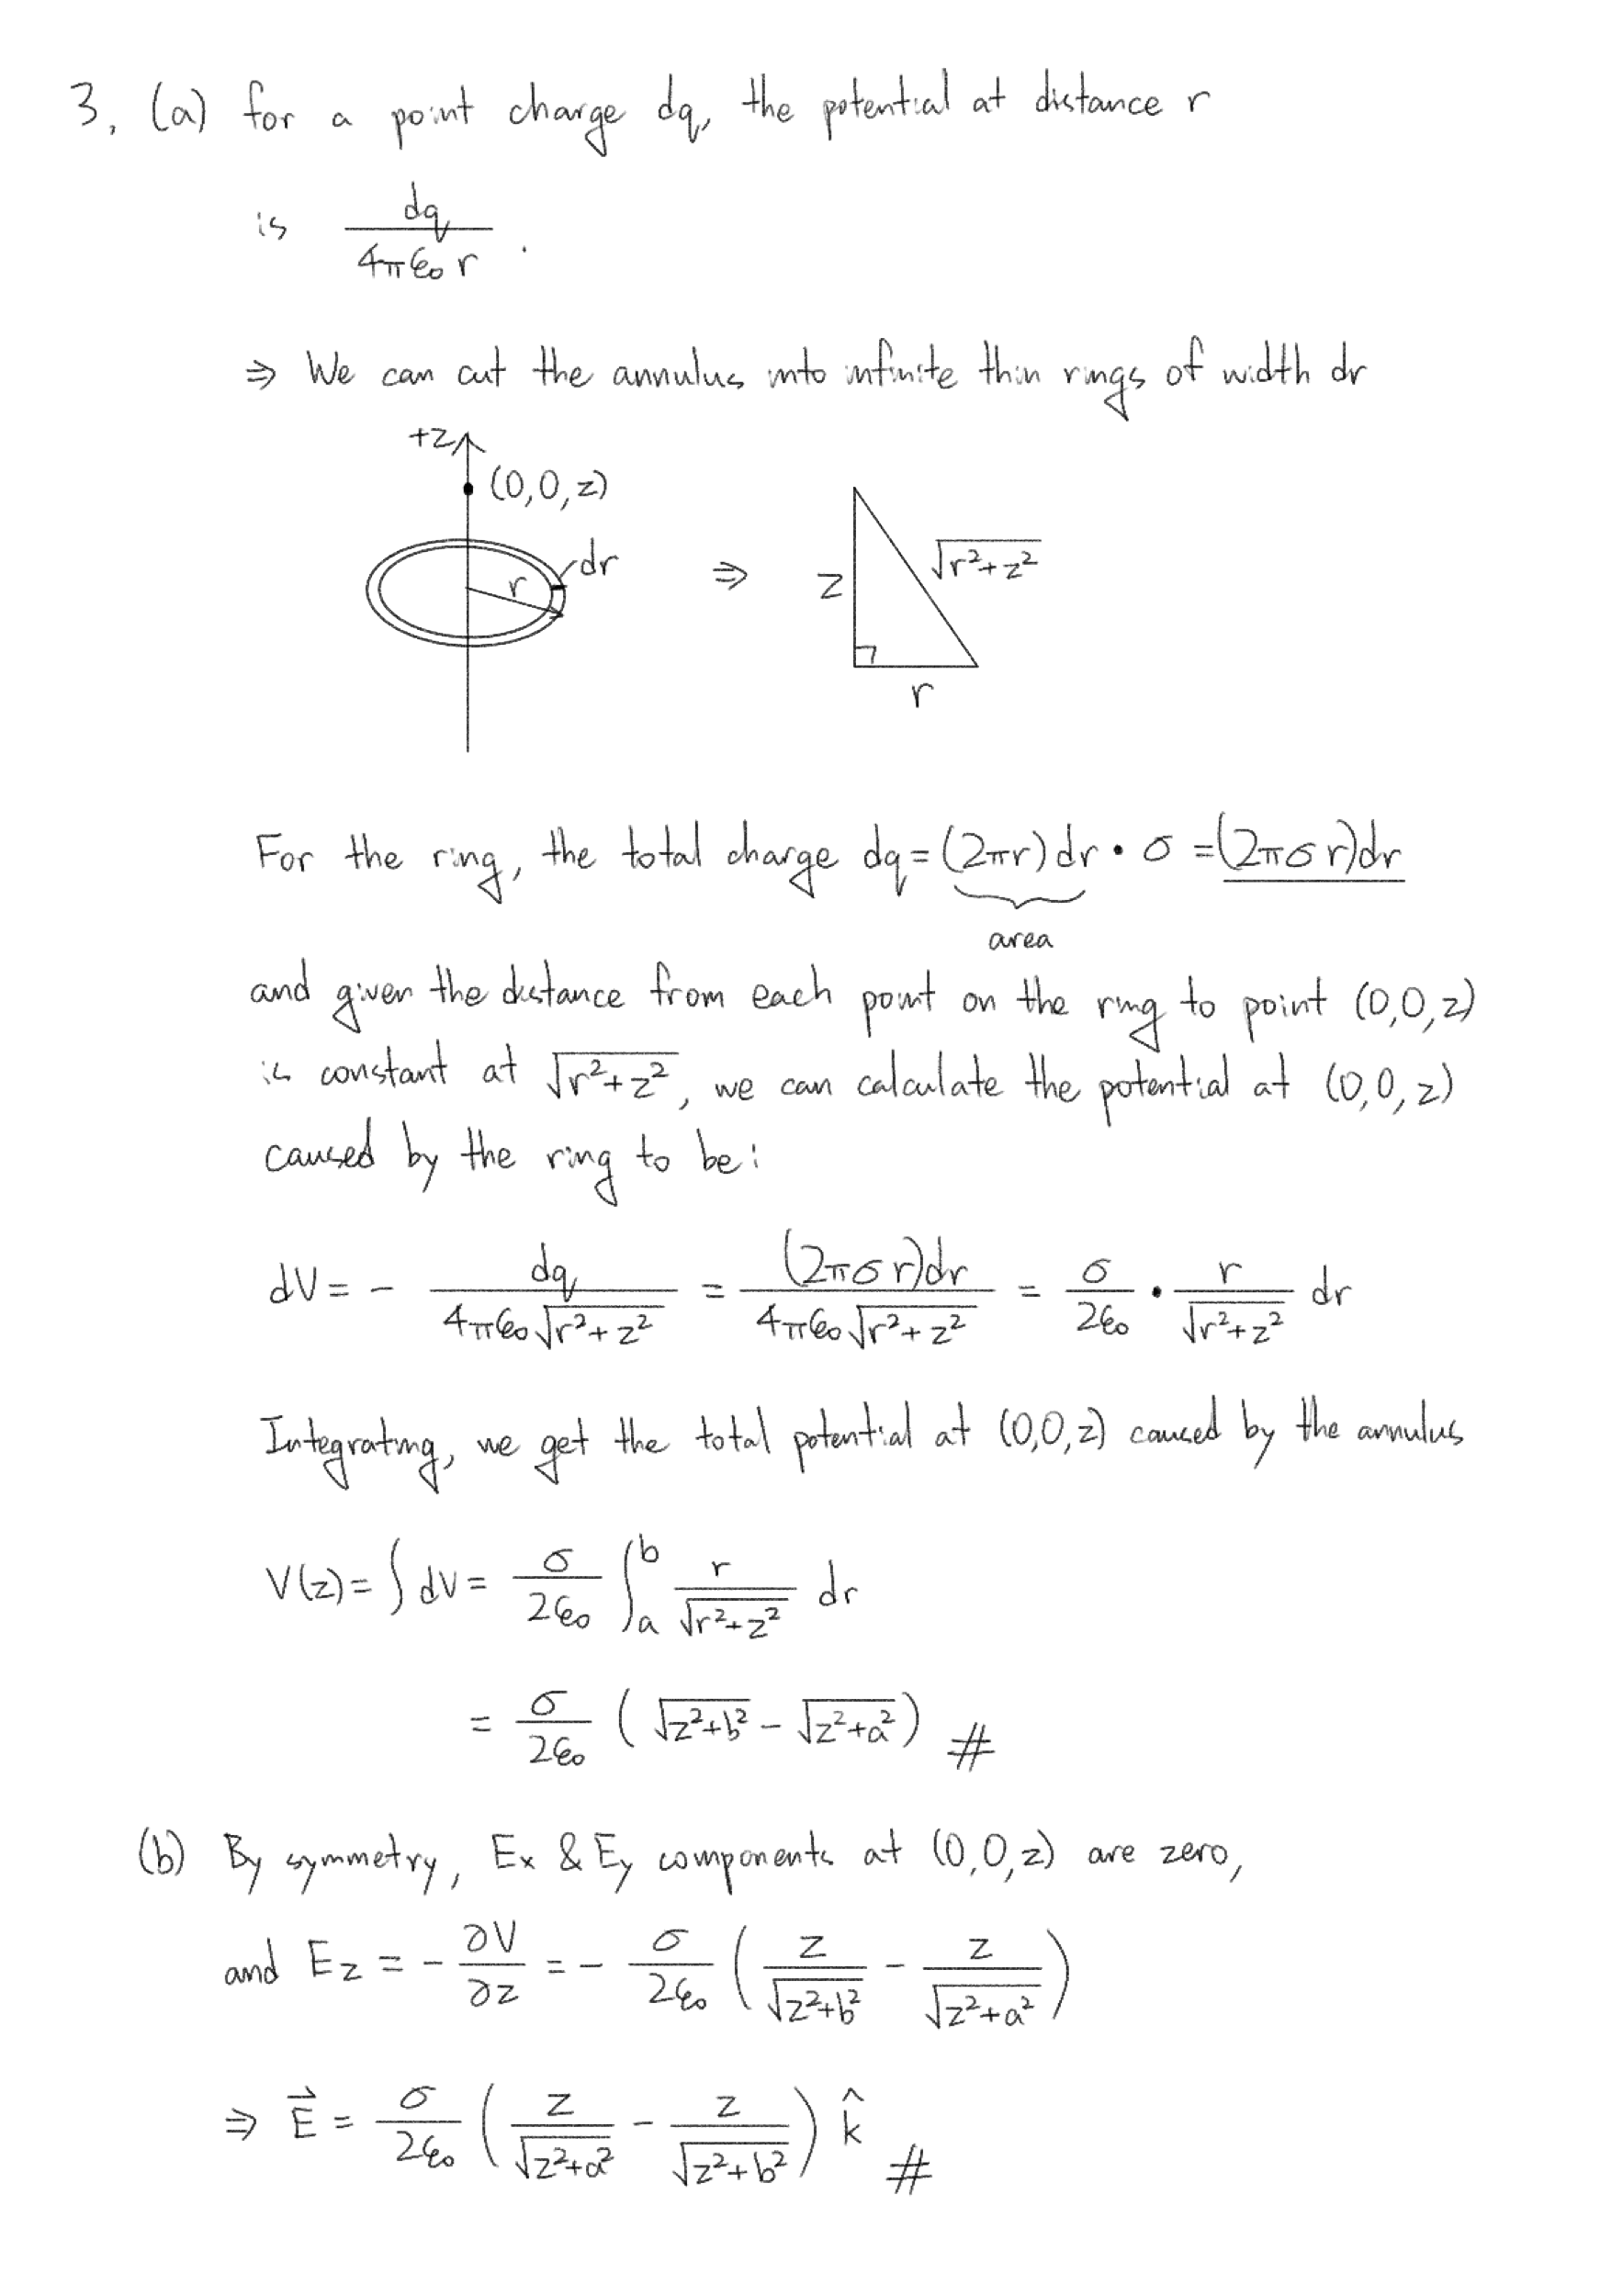 3. (a) for a point charge dq, the potential at distance r
is dq / 4πε₀r .
⇒ We can cut the annulus into infinite thin rings of width dr
+z
(0,0,z)
dr
r
⇒
z
√(r²+z²)
r
For the ring, the total charge dq = (2πr)dr · σ = (2πσr)dr
area
and given the distance from each point on the ring to point (0,0,z)
is constant at √(r²+z²), we can calculate the potential at (0,0,z)
caused by the ring to be:
dV = - dq / 4πε₀√(r²+z²) = (2πσr)dr / 4πε₀√(r²+z²) = σ/2ε₀ · r/√(r²+z²) dr
Integrating, we get the total potential at (0,0,z) caused by the annulus
V(z) = ∫dV = σ/2ε₀ ∫ₐᵇ r/√(r²+z²) dr
= σ/2ε₀ (√(z²+b²) - √(z²+a²)) #
(b) By symmetry, Ex & Ey components at (0,0,z) are zero,
and Ez = - ∂V/∂z = - σ/2ε₀ (z/√(z²+b²) - z/√(z²+a²))
⇒ E⃗ = σ/2ε₀ (z/√(z²+a²) - z/√(z²+b²)) k̂ #